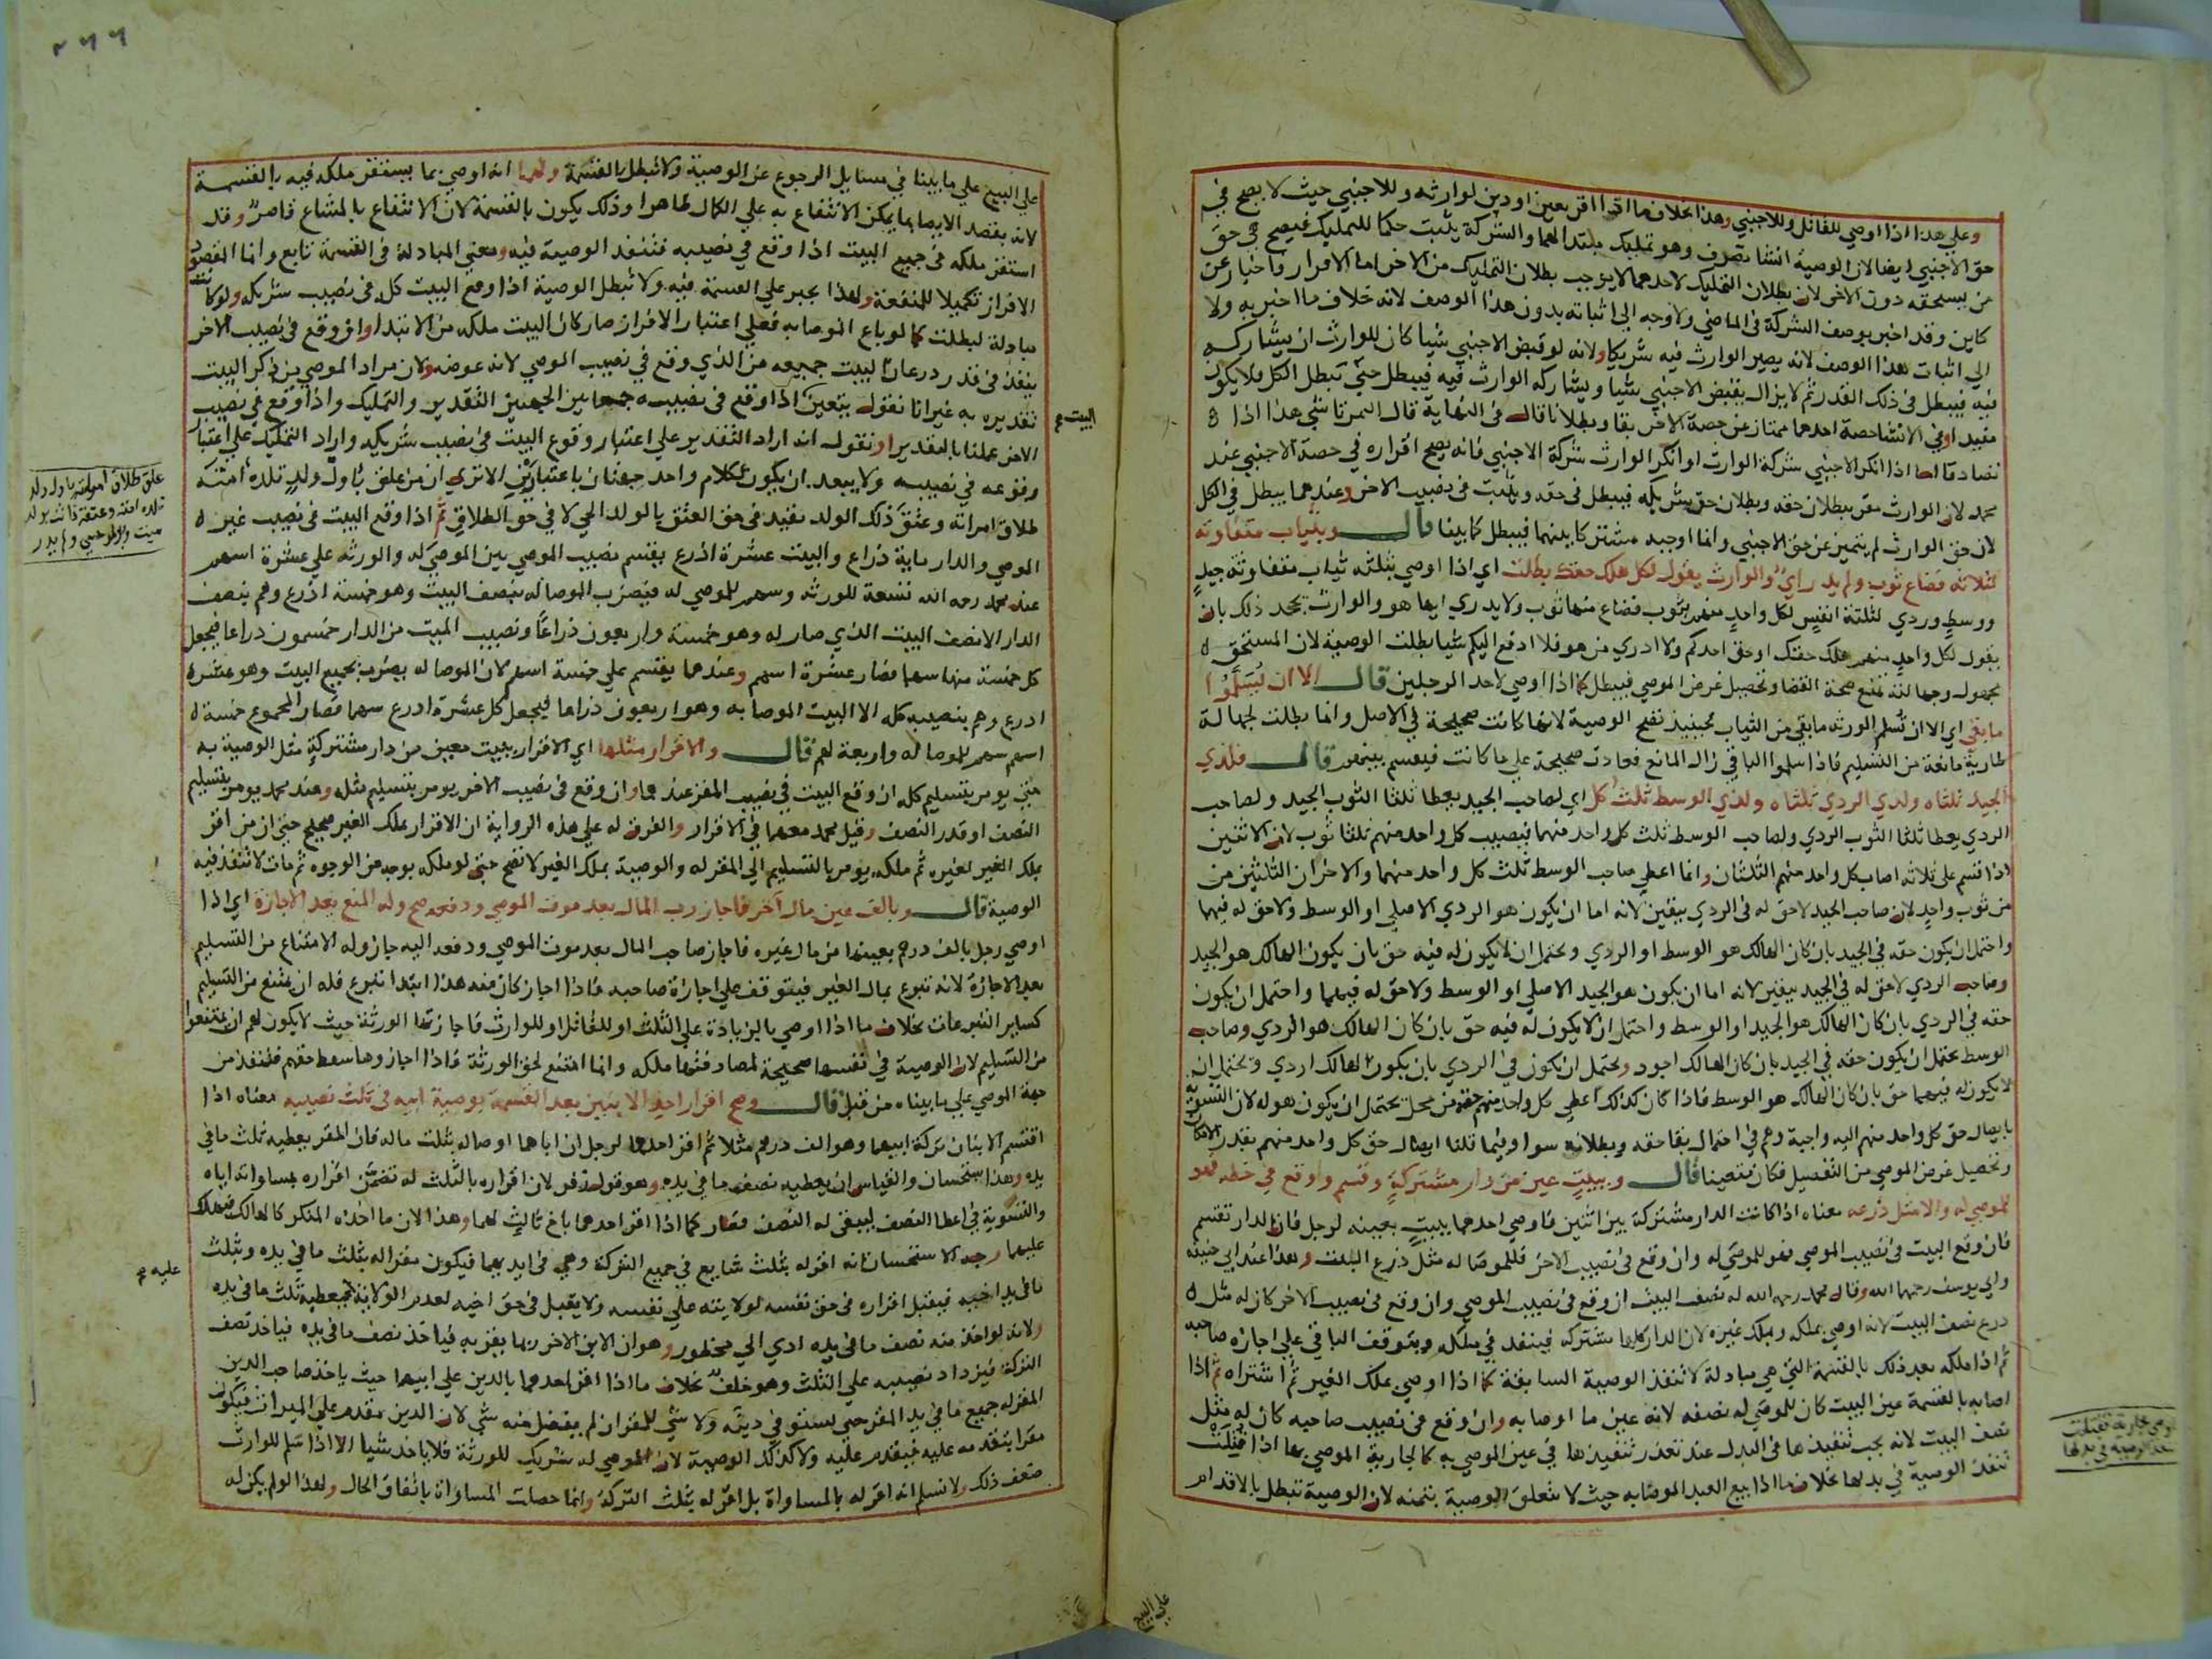 وعلي هذا اذا اوصي للقاتل وللاجنبي وهذا بخلاف ما اذا اقر بعين او دين لوارثه وللاجنبي حيث لا يصح في
حق الاجنبي ايضا لان الوصية انشا تصرف وهو تمليك مبتدا لهما والشركة يثبت حكما للتمليك فيصح في حق
من يستحقه دون الاخر لان بطلان التمليك لاحدهما لا يوجب بطلان التمليك من الاخر اما الاقرار فاخبار عن
كاين وقد اخبر بوصف الشركة في الماضي ولا وجه الي اثباته بدون هذا الوصف لانه خلاف ما اخبر به ولا
الي اثبات هذا الوصف لانه يصير الوارث فيه شريكا ولانه لو قبض الاجنبي شيا كان للوارث ان يشاركه
فيه فيبطل في ذلك القدر ثم لا يزال يقبض الاجنبي شيا ويشاركه الوارث فيه فيبطل حتي تبطل الكل فلا يكون
مفيدا وفي الانشا حصة احدهما ممتاز عن حصة الاخر بقا وبطلانا قال في النهاية قال التمرتاشي هذا اذا
تصادقا اما اذا انكر الاجنبي شركة الوارث او انكر الوارث شركة الاجنبي فانه يصح اقراره في حصة الاجنبي عند
محمد لان الوارث مقر ببطلان حقه وبطلان حق شريكه فيبطل في حقه ويثبت في نصيب الاخر وعندهما يبطل في الكل
لان حق الوارث لم يتميز عن حق الاجنبي وانما اوجبه مشتركا بينهما فيبطل كما بينا قال وبثياب متفاوته
لثلاثه فضاع ثوب ولم يدر اي والوارث يقول لكل هلك حقك بطلت اي اذا اوصي بثلثه ثياب متفاوته جيد
ووسط وردي لثلثة انفس لكل واحد منهم بثوب فضاع منها ثوب ولا يدري ايها هو والوارث يجحد ذلك بان
يقول لكل واحد منهم هلك حقك او حق احدكم ولا ادري من هو فلا ادفع اليكم شيا بطلت الوصية لان المستحق
مجهول وجهالته تمنع صحة القضا وتحصيل غرض الموصي فيبطل كما اذا اوصي لاحد الرجلين قال الا ان يسلموا
ما بقي اي الا ان تسلم الورثه ما بقي من الثياب فحينيذ تصح الوصية لانها كانت صحيحة في الاصل وانما بطلت لجهالة
طارية مانعة من التسليم فاذا سلموا الباقي زال المانع فعادت صحيحة علي ما كانت فيقسم بينهم قال فلذي
الجيد ثلثاه ولذي الردي ثلثاه ولذي الوسط ثلث كل اي لصاحب الجيد يعطا ثلثا الثوب الجيد ولصاحب
الردي يعطا ثلثا الثوب الردي ولصاحب الوسط ثلث كل واحد منهما فيصيب كل واحد منهم ثلثا ثوب لان الاثنين
اذا قسم علي ثلاثه اصاب كل واحد منهم الثلثان وانما اعطي صاحب الوسط ثلث كل واحد منهما والاخران الثلثين من
من ثوب واحد لان صاحب الجيد لا حق له في الردي بيقين لانه اما ان يكون هو الردي الاصلي او الوسط ولا حق له فيهما
واحتمل ان يكون حقه في الجيد بان كان الهالك هو الوسط او الردي ويحتمل ان لا يكون له فيه حق بان يكون الهالك هو الجيد
وصاحب الردي لا حق له في الجيد بيقين لانه اما ان يكون هو الجيد الاصلي او الوسط ولا حق له فيهما واحتمل ان يكون
حقه في الردي بان كان الهالك هو الجيد او الوسط واحتمل ان لا يكون له فيه حق بان كان الهالك هو الردي وصاحب
الوسط يحتمل ان يكون حقه في الجيد بان كان الهالك اجود ويحتمل ان يكون في الردي بان يكون الهالك اردي ويحتمل ان
لا يكون له فيهما حق بان كان الهالك هو الوسط فاذا كان كذلك اعطي كل واحد منهم حقه من محل يحتمل ان يكون هو له لان التسوية
بايصال حق كل واحد منهم اليه واجبة وهم في احتمال بقا حقه وبطلانه سوا وفيما قلنا ايصال حق كل واحد منهم بقدر الامكان
وتحصيل غرض الموصي من التفصيل فكان متعينا قال وببيت عين من دار مشتركة وقسم ووقع في حظه فهو
للموصي له والا مثل ذرعه معناه اذا كانت الدار مشتركة بين اثنين فاوصي احدهما ببيت بعينه لرجل فان الدار تقسم
فان وقع البيت في نصيب الموصي فهو للموصي له وان وقع في نصيب الاخر فللموصا له مثل ذرع البيت وهذا عند ابي حنيفة
وابي يوسف رحمهما الله وقال محمد رحمه الله له نصف البيت ان وقع في نصيب الموصي وان وقع في نصيب الاخر كان له مثل
ذرع نصف البيت لانه اوصي بملكه وبملك غيره لان الدار كلها مشتركة فينفذ في ملكه ويتوقف الباقي علي اجازه صاحبه
ثم اذا ملكه بعد ذلك بالقسمة التي هي مبادلة لا تنفذ الوصية السابقة كما اذا اوصي بملك الغير ثم اشتراه ثم اذا
اصابه بالقسمة عين البيت كان للموصي له نصفه لانه عين ما اوصا به وان وقع في نصيب صاحبه كان له مثل
نصف البيت لانه يجب تنفيذها في البدل عند تعذر تنفيذها في عين الموصي به كالجارية الموصي بها اذا قتلت
تنفذ الوصية في بدلها بخلاف ما اذا بيع العبد الموصا به حيث لا تتعلق الوصية بثمنه لان الوصية تبطل بالاقدام
علي البيع
٢٦٦
علي البيع علي ما بينا في مسايل الرجوع عن الوصية ولا تبطل بالقسمة ولهما انه اوصي بما يستقر ملكه فيه بالقسمة
لانه يقصد الايصا بما يمكن الانتفاع به علي الكمال ظاهرا وذلك يكون بالقسمة لان الانتفاع بالمشاع قاصر وقد
استقر ملكه في جميع البيت اذا وقع في نصيبه فتنفذ الوصية فيه ومعني المبادلة في القسمة تابع وانما المقصود
الافراز تكميلا للمنفعة ولهذا يجبر علي القسمة فيه ولا تبطل الوصية اذا وقع البيت كله في نصيب شريكه ولو كانت
مبادلة لبطلت كما لو باع الموصا به فعلي اعتبار الافراز صار كان البيت ملكه من الابتدا وان وقع في نصيب الاخر
ينفذ في قدر درعان البيت جميعه من الذي وقع في نصيب الموصي لانه عوضه ولان مراد الموصي من ذكر البيت
تقديره به غير انا نقول يتعين اذا وقع في نصيبه جمعا بين الجهتين التقدير والتمليك واذا وقع في نصيب
الاخر عملنا بالتقدير او نقول انه اراد التقدير علي اعتبار وقوع البيت في نصيب شريكه واراد التمليك علي اعتبار
وقوعه في نصيبه ولا يبعد ان يكون لكلام واحد جهتان باعتبارين الا تري ان من علق باول ولد تلده امته
طلاق امراته وعتق ذلك الولد يقيد في حق العتق بالولد الحي لا في حق الطلاق ثم اذا وقع البيت في نصيب غير
الموصي والدار ماية ذراع والبيت عشرة اذرع يقسم نصيب الموصي بين الموصي له والورثه علي عشرة اسهم
عند محمد رحمه الله تسعة للورثه وسهم للموصي له فيضرب الموصا له بنصف البيت وهو خمسة اذرع وهم بنصف
الدار الا نصف البيت الذي صار له وهو خمسة واربعون ذراعا ونصيب الميت من الدار خمسون دراعا فيجعل
كل خمسة منها سهما فصار عشرة اسهم وعندهما يقسم علي خمسة اسهم لان الموصا له يضرب بجميع البيت وهو عشرة
اذرع وهم بنصيبه كله الا البيت الموصا به وهو اربعون ذراعا فيجعل كل عشرة اذرع سهما فصار المجموع خمسة
اسهم سهم للموصا له واربعة لهم قال والاقرار مثلها اي الاقرار ببيت معين من دار مشتركة مثل الوصية به
حتي يومر بتسليم كله ان وقع البيت في نصيب المقر عندهما وان وقع في نصيب الاخر يومر بتسليم مثله وعند محمد يومر بتسليم
النصف او قدر النصف وقيل محمد معهما في الاقرار والفرق له علي هذه الرواية ان الاقرار بملك الغير صحيح حتي ان من اقر
بملك الغير لغيره ثم ملكه يومر بالتسليم الي المقر له والوصية بملك الغير لا تصح حتي لو ملكه بوجه من الوجوه ثم مات لا تنفذ فيه
الوصية قال وبالف عين مال آخر فاجاز رب المال بعد موت الموصي ودفعه صح وله المنع بعد الاجازة اي اذا
اوصي رجل بالف درهم بعينها من مال غيره فاجاز صاحب المال بعد موت الموصي ودفعه اليه جاز وله الامتناع من التسليم
بعد الاجازة لانه تبرع بمال الغير فيتوقف علي اجازة صاحبه فاذا اجاز كان منه هذا ابتدا تبرع فله ان يمتنع من التسليم
كساير التبرعات بخلاف ما اذا اوصي بالزيادة علي الثلث او للقاتل او للوارث فاجازتها الورثة حيث لا يكون لهم ان يمتنعوا
من التسليم لان الوصية في نفسها صحيحة لمصادفتها ملكه وانما امتنع لحق الورثة فاذا اجازوها سقط حقهم فتنفذ من
جهة الموصي علي ما بيناه من قبل قال وصح اقرار احد الابنين بعد القسمة بوصية ابيه في ثلث نصيبه معناه اذا
اقتسم الابنان تركة ابيهما وهو الف درهم مثلا ثم اقر احدهما لرجل ان اباهما اوصا له بثلث ماله فان المقر يعطيه ثلث ما في
يده وهذا استحسان والقياس ان يعطيه نصف ما في يده وهو قول زفر لان اقراره بالثلث له تضمن اقراره بمساواته اياه
والتسوية في اعطا النصف ليبقي له النصف فصار كما اذا اقر احدهما باخ ثالث لهما وهذا لان ما اخذه المنكر كالهالك فيهلك
عليهما وجه الاستحسان انه اقر له بثلث شايع في جميع التركة وهي في ايديهما فيكون مقرا له بثلث ما في يده وبثلث
ما في يد اخيه فيقبل اقراره في حق نفسه لولايته علي نفسه ولا يقبل في حق اخيه لعدم الولاية فيعطيه ثلث ما في يده
ولانه لو اخذ منه نصف ما في يده ادي الي محظور وهو ان الابن الاخر ربما يقر به فياخذ نصف ما في يده فياخذ نصف
التركة فيزداد نصيبه علي الثلث وهو خلف بخلاف ما اذا اقر احدهما بالدين علي ابيهما حيث ياخذ صاحب الدين
المقر له جميع ما في يد المقر حتي يستوفي دينه ولا شي للمقر ان لم يفضل منه شي لان الدين مقدم علي الميراث فيكون
مقرا بتقدمه عليه فيقدم عليه ولا كذلك الوصية لان الموصي له شريك للورثة فلا ياخذ شيا الا اذا سلم للوارث
ضعف ذلك ولا نسلم انه اقر له بالمساواة بل اقر له بثلث التركة وانما حصلت المساواة باتفاق الحال ولهذا لو لم يكن له
البيت
علق طلاق امراته باول ولد
تلده امته وعتقه فاتت بولد
عليه